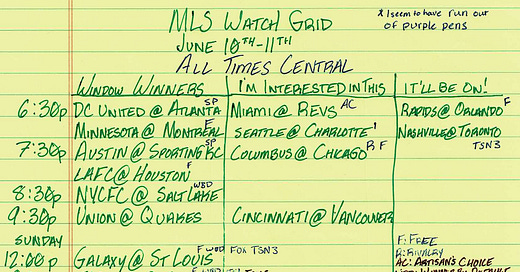 MLS WATCH GRID
* I seem to have run out
of purple pens
JUNE 10TH-11TH
ALL TIMES CENTRAL
WINDOW WINNERS I'M INTERESTED IN THIS IT'LL BE ON!
6:30p DC UNITED @ ATLANTA SP MIAMI @ REVS AC RAPIDS @ ORLANDO F
MINNESOTA @ MONTREAL F SEATTLE @ CHARLOTTE NASHVILLE @ TORONTO
7:30p AUSTIN @ SPORTING KC SP COLUMBUS @ CHICAGO R F TSN3
LAFC @ HOUSTON F
8:30p NYCFC @ SALT LAKE WBD
9:30p UNION @ QUAKES CINCINNATI @ VANCOUVER
SUNDAY F: FREE
12:00p GALAXY @ ST LOUIS F WBD FOX TSN3 R: RIVALRY
AC: ARTISAN'S CHOICE